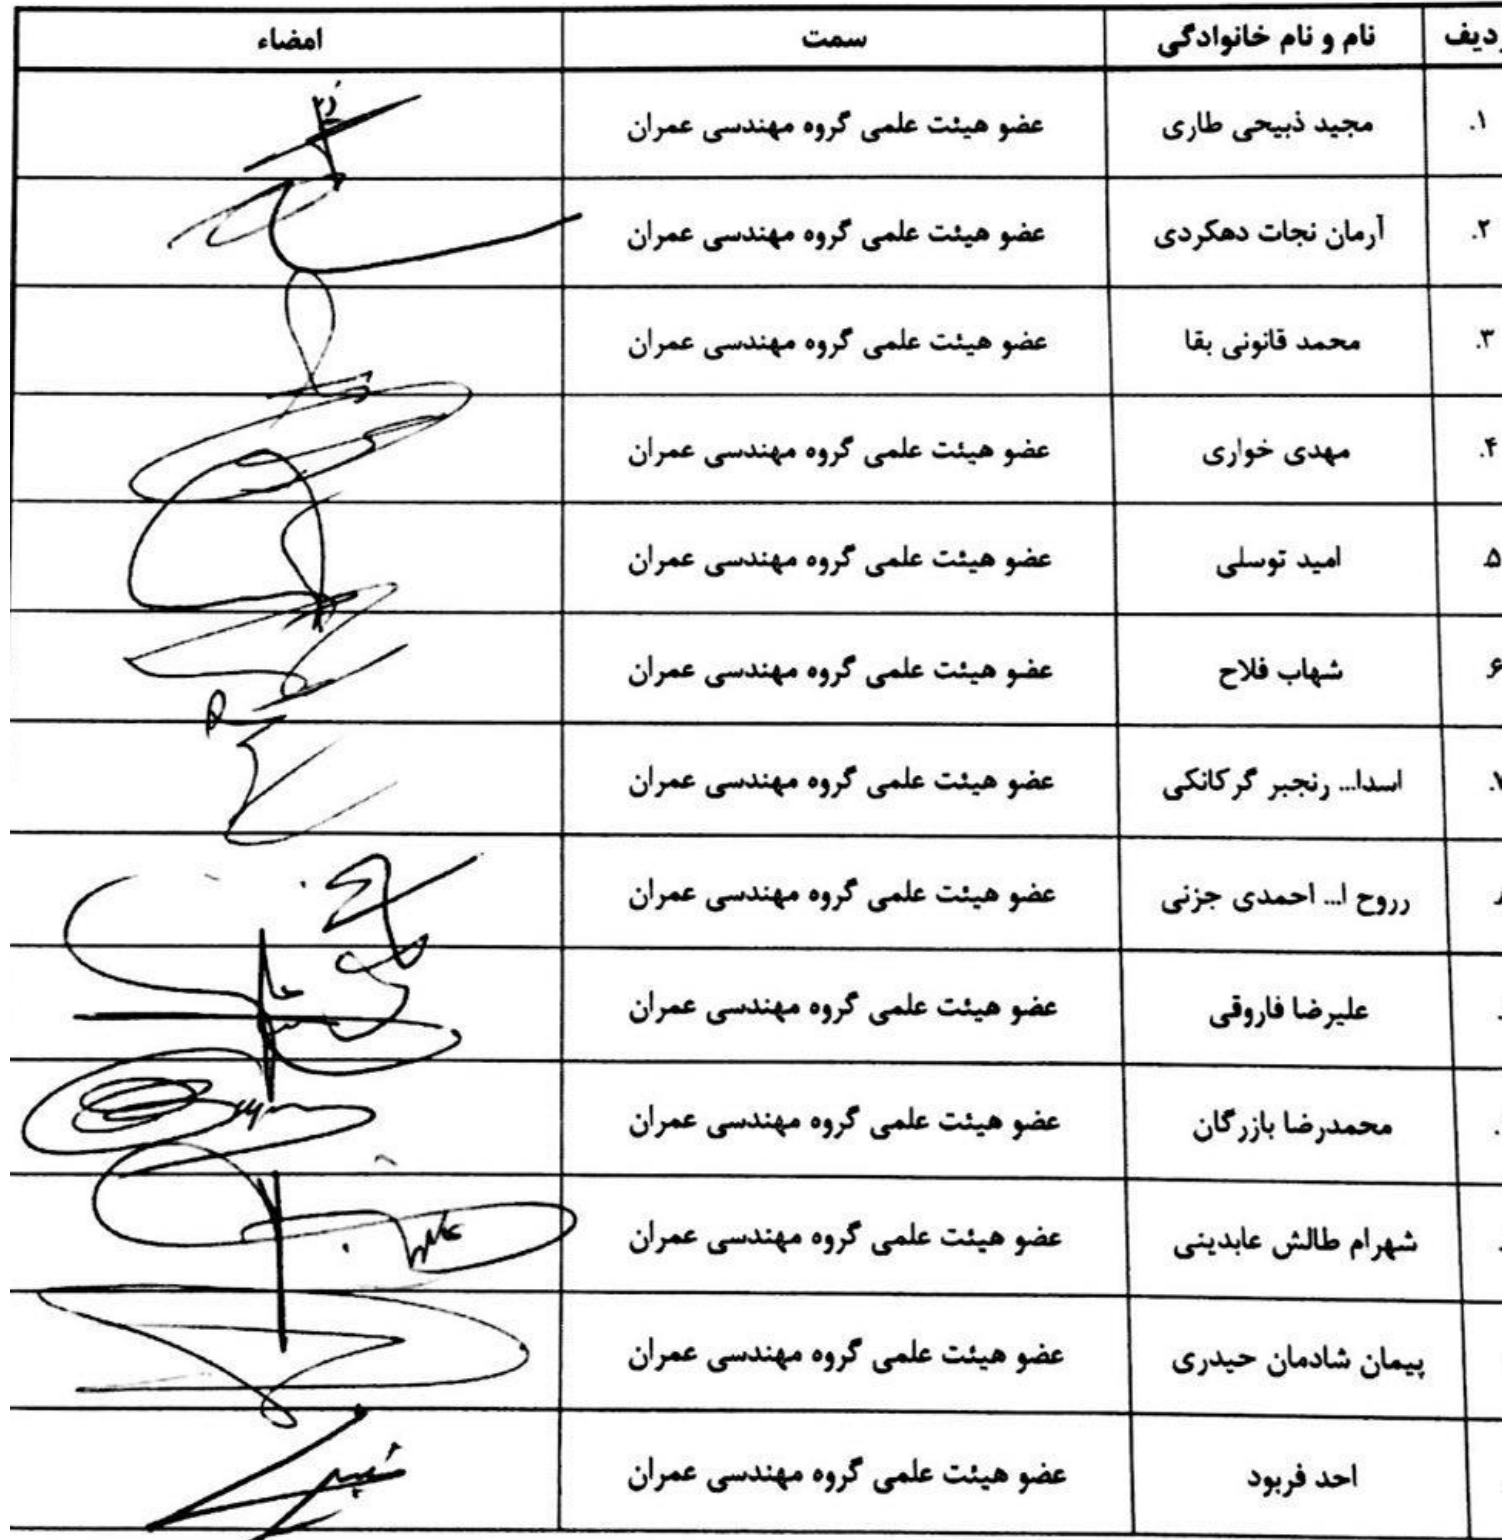 ردیف نام و نام خانوادگی سمت امضاء
۱. مجید ذبیحی طاری عضو هیئت علمی گروه مهندسی عمران
۲. آرمان نجات دهکردی عضو هیئت علمی گروه مهندسی عمران
۳. محمد قانونی بقا عضو هیئت علمی گروه مهندسی عمران
۴. مهدی خواری عضو هیئت علمی گروه مهندسی عمران
۵ امید توسلی عضو هیئت علمی گروه مهندسی عمران
۶ شهاب فلاح عضو هیئت علمی گروه مهندسی عمران
۷. اسدا... رنجبر گرکانکی عضو هیئت علمی گروه مهندسی عمران
رروح ا... احمدی جزنی عضو هیئت علمی گروه مهندسی عمران
علیرضا فاروقی عضو هیئت علمی گروه مهندسی عمران
محمدرضا بازرگان عضو هیئت علمی گروه مهندسی عمران
شهرام طالش عابدینی عضو هیئت علمی گروه مهندسی عمران
پیمان شادمان حیدری عضو هیئت علمی گروه مهندسی عمران
احد فربود عضو هیئت علمی گروه مهندسی عمران